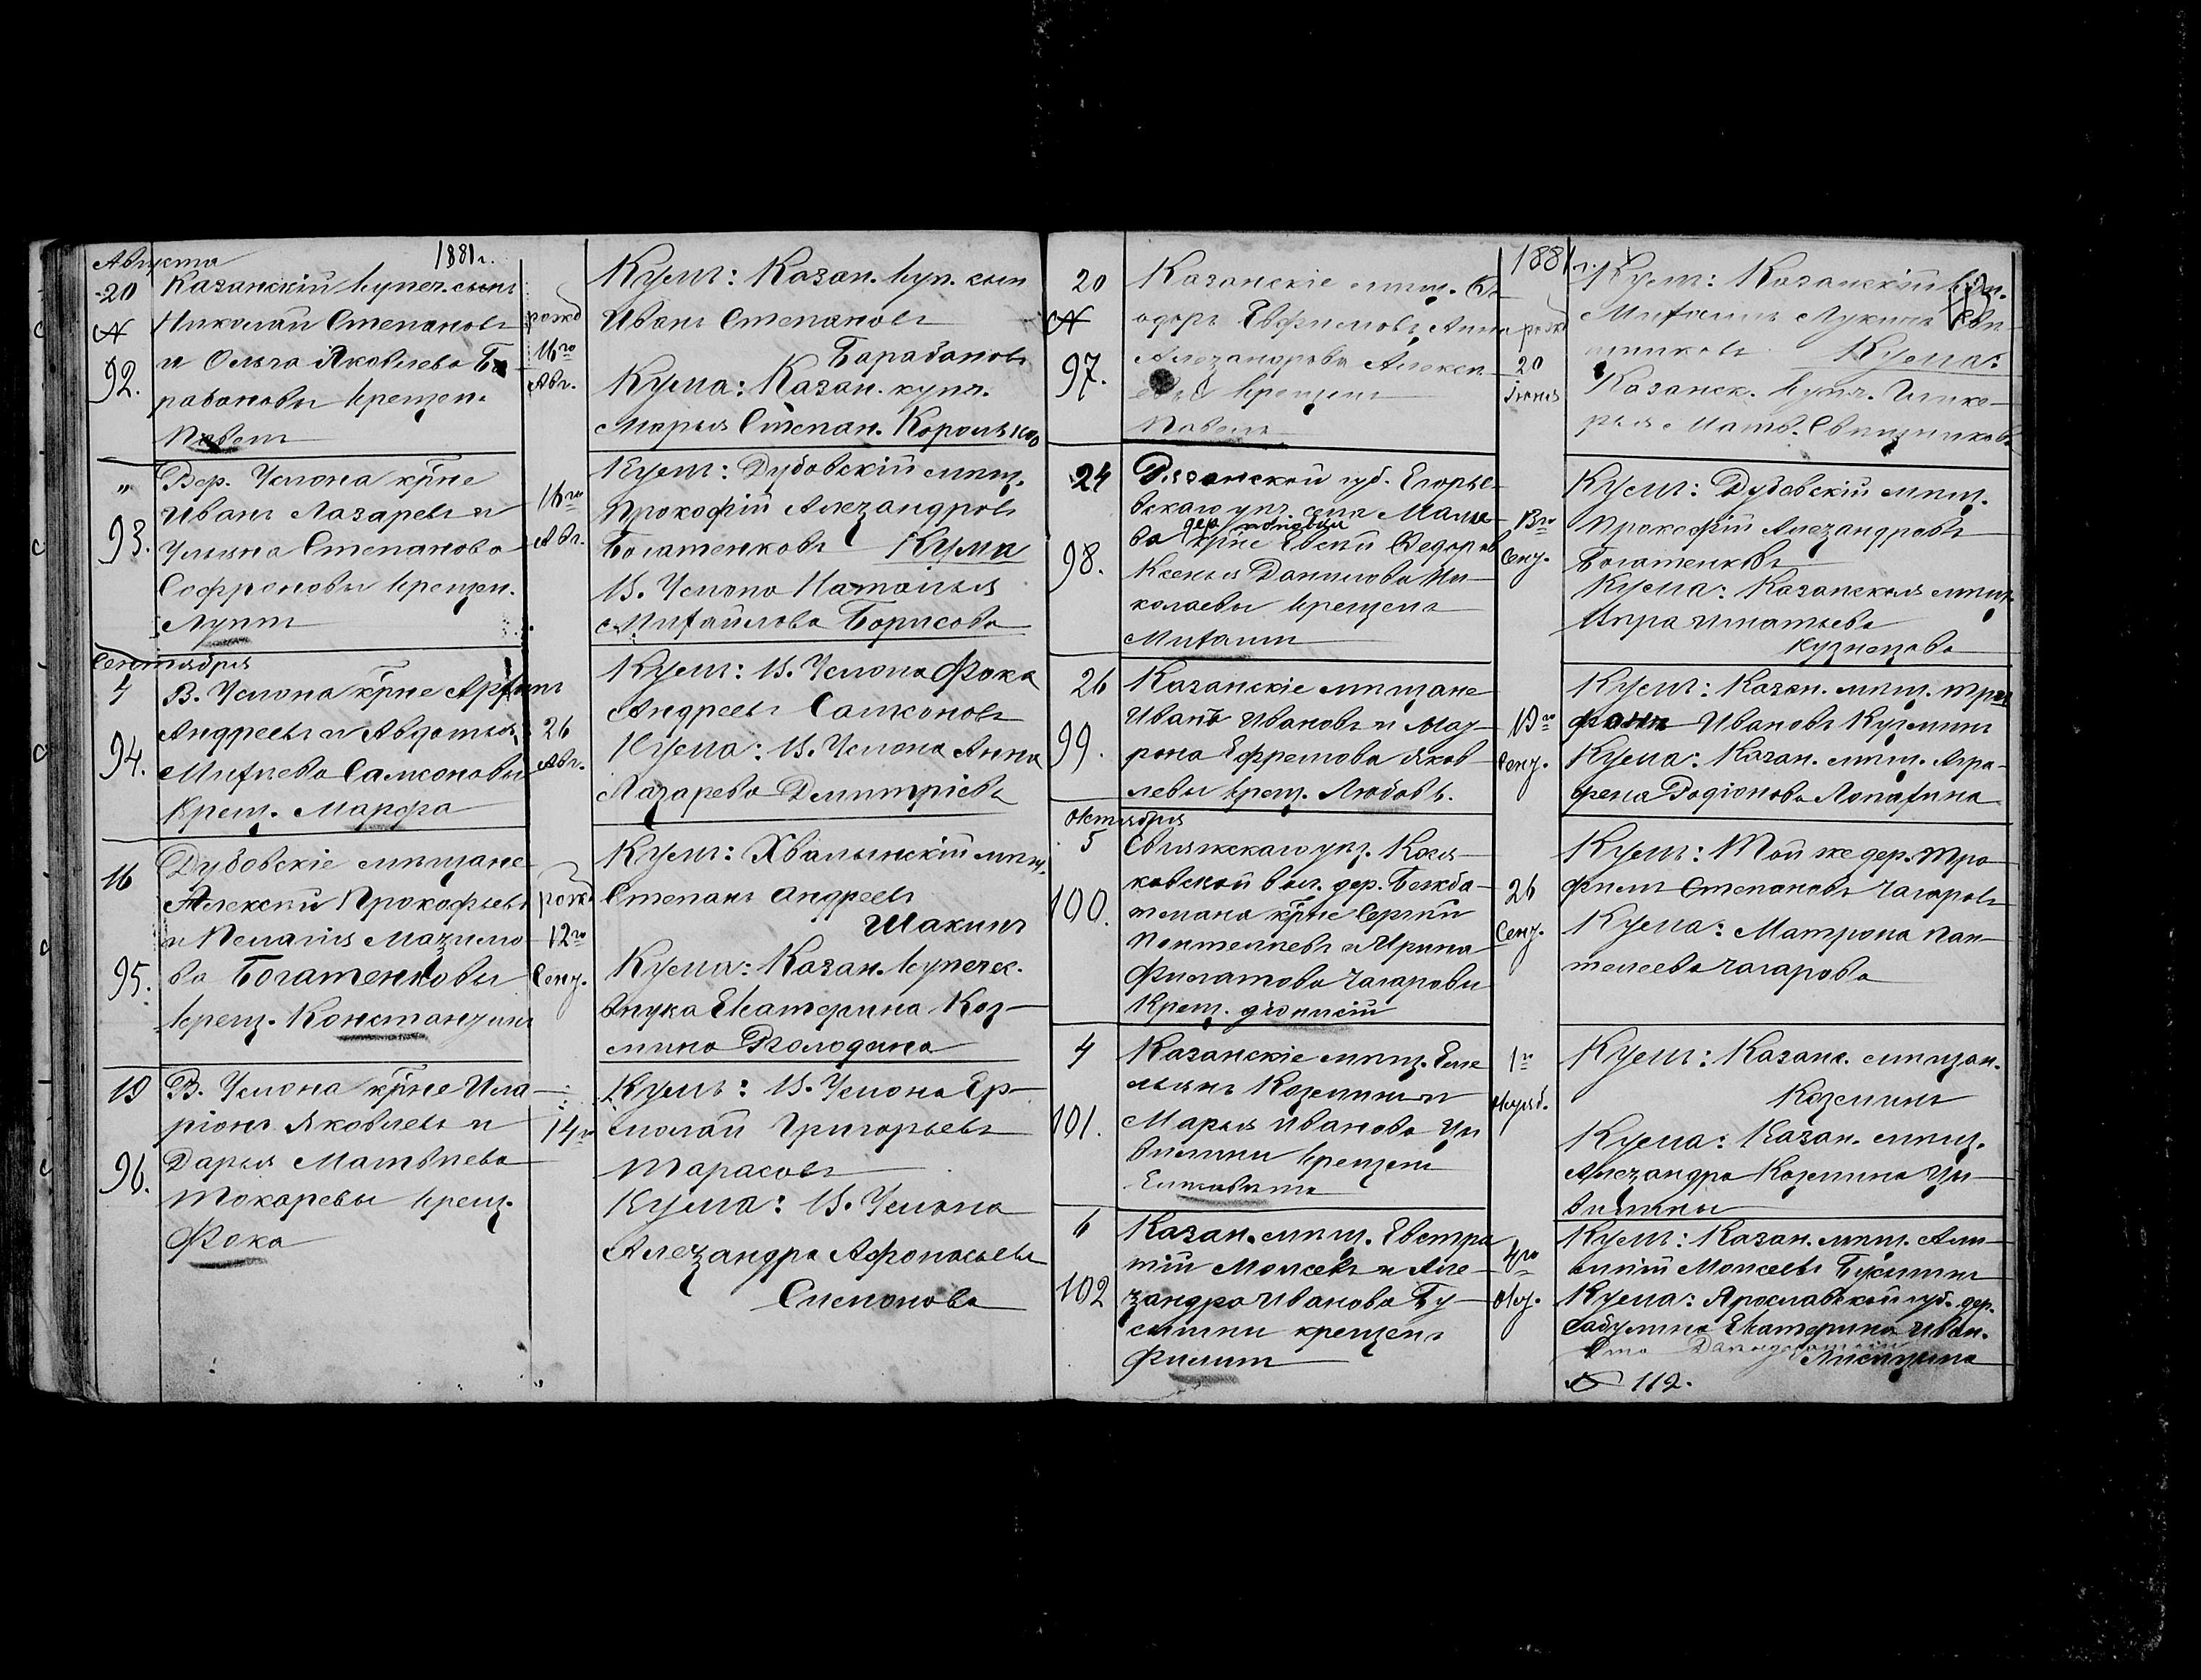 Августа
1881 г.
20
№
92.
Казанскій купеч. сынъ
Николай Степановъ
и Ольга Яковлева Ба-
рабановы крещенъ
Павелъ
рожд
16го
Авг.
Кумъ: Казан. куп. сын
Иванъ Степановъ
Барабановъ
Кума: Казан. купч.
Марья Степан. Королькова
"
93.
Вер. Услона кр̃не
Иванъ Лазаревъ и
Ульяна Степанова
Софроновы крещен.
Луппъ
16го
Авг.
Кумъ: Дубовскій мѣщ.
Прокофій Александровъ
Богатенковъ Кума
В. Услона Наталья
Михайлова Борисова
Сентября
4
94.
В. Услона кр̃не
Андреевъ и Авдотья
Михѣева Самсоновы
Крещ. Марфа
26
Авг.
Кумъ: В. Услона Фока
Андреевъ Самсоновъ
Кума: В. Услона Анна
Лазарева Дмитріевъ
16
95.
Дубовскіе мѣщане
Алексѣй Прокофьевъ
и Пелагія Махимо-
ва Богатенковы
крещ. Константинъ
рожд
12го
Сент.
Кумъ: Хвалынскій мѣщ.
Степанъ Андреевъ
Шакинъ
Кума: Казан. купечес.
внука Екатерина Коз-
мина
19
96.
В. Услона кр̃не Ила-
ріонъ Яковлевъ и
Дарья Матвѣева
Токаревы крещ.
Фока
14го
Кумъ: В. Услона Ер-
молай Григорьевъ
Тарасовъ
Кума: В. Услона
Александра Афонасьева
Симонова
1881 г.
20
№
97.
Казанскіе мѣщ. Ѳе-
одоръ Евфимовъ, Анна
Александрова Алексѣ-
крещенъ
Павелъ
рожд
20
Іюня
Кумъ: Казанскій
Михаилъ Лукинъ
Кума:
Казанск. купч. Глике-
рья Матв. Свѣшникова
24
98.
Рязанской губ. Егорье-
вскаго уѣз. села
дер.
кр̃не Евсѣй Ѳедоровъ
Ксенья Данилова Ни-
колаевы крещенъ
Михаилъ
13го
Сент.
Кумъ: Дубовскій мѣщ.
Прокофій Александровъ
Богатенковъ
Кума: Казанская мѣщ.
Игнатьева
Кузнецова
26
99.
Казанскіе мѣщане
Иванъ Ивановъ и Мат-
рона Ефремова Яков-
левы крещ. Любовь.
19го
Сент.
Кумъ: Казан. мѣщ. Три-
фонъ Ивановъ Кузминъ
Кума: Казан. мѣщ. Агра-
фена Родіонова Лопатина
Октября
5
100.
Свіяжскаго уѣз.
вол. дер. Бежба-
тмана кр̃не Сергѣй
Пантелѣевъ и Ирина
Филатова Чагаровы
Крещ. Діонисій
26
Сент.
Кумъ: Той же дер. Тро-
фимъ Степановъ Чагаровъ
Кума: Матрона Пан-
телеева Чагарова
4
101.
Казанскіе мѣщ. Еме-
льянъ Козминъ и
Марья Иванова Ци-
вилины крещена
Елизавета
1го
Октяб.
Кумъ: Казанс. мѣщан.
Козминъ
Кума: Казан. мѣщ.
Александра Козмина Ци-
вилины
6
102
Казан. мѣщ. Евстра-
тій Моисеевъ и Але-
ксандра Иванова Бу-
сыгины крещенъ
Филипъ
4го
Окт.
Кумъ: Казан. мѣщ.
Моисеевъ Бусыгинъ
Кума: Ярославской губ. дер.
Екатерина Иван.
Лисицына
№ 112.